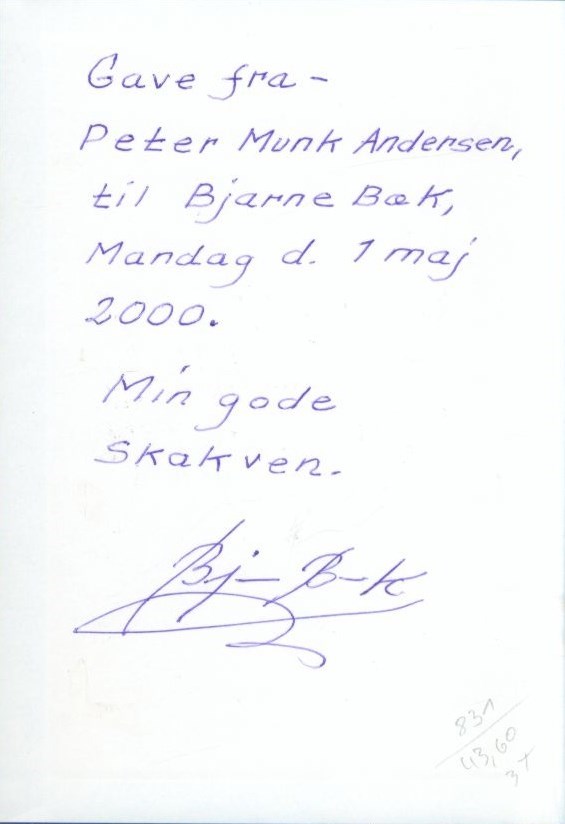 Gave fra -
Peter Munk Andersen,
til Bjarne Bæk,
Mandag d. 1 maj
2000.
Min gode
Skakven.
Bj- B-k
831
43,60